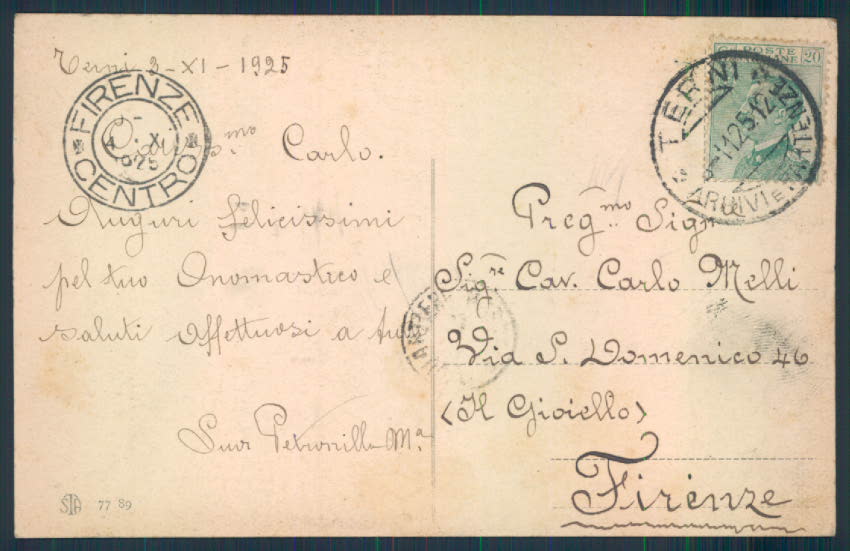 Terni 3-XI-1925
FIRENZE
CENTRO
4 XI
1925
Cariss.mo Carlo.
Auguri felicissimi
pel tuo Onomastico e
saluti affettuosi a tutti
Suor Petronilla Ma
STA 77 89
POSTE ITALIANE 20
TERNI
ARRIVI E PARTENZE
11.25.12
Preg.mo Sign
Sig.re Cav. Carlo Melli
Via S. Domenico 46
(Il Gioiello)
Firenze